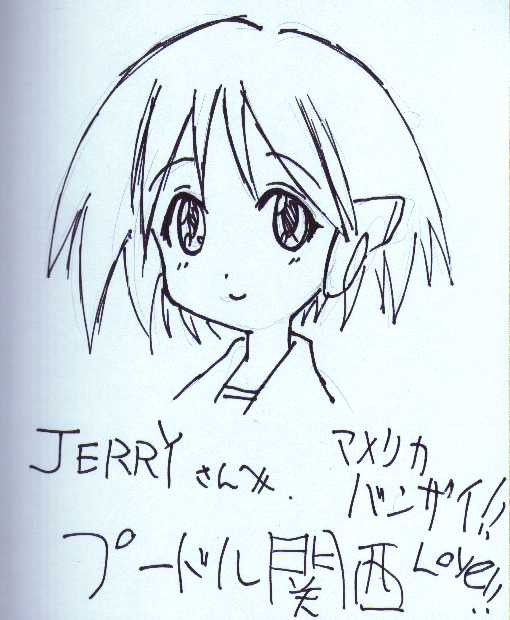 JERRYさんへ.
アメリカ
バンザイ!!
プードル関西 Love!!